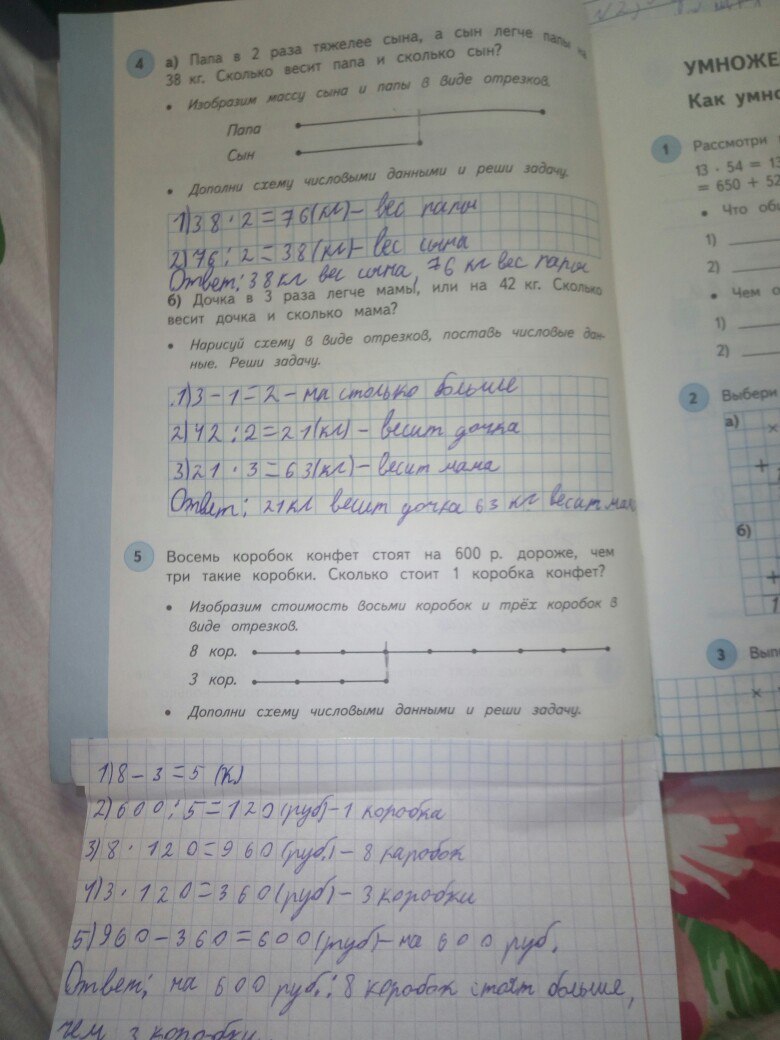 4 а) Папа в 2 раза тяжелее сына, а сын легче папы на
38 кг. Сколько весит папа и сколько сын?
• Изобразим массу сына и папы в виде отрезков.
Папа
Сын
• Дополни схему числовыми данными и реши задачу.
1) 38 · 2 = 76 (кг) – вес папы
2) 76 : 2 = 38 (кг) – вес сына
Ответ: 38 кг вес сына, 76 кг вес папы
б) Дочка в 3 раза легче мамы, или на 42 кг. Сколько
весит дочка и сколько мама?
• Нарисуй схему в виде отрезков, поставь числовые дан-
ные. Реши задачу.
1) 3 – 1 = 2 – на столько больше
2) 42 : 2 = 21 (кг) – весит дочка
3) 21 · 3 = 63 (кг) – весит мама
Ответ: 21 кг весит дочка 63 кг весит мам
5 Восемь коробок конфет стоят на 600 р. дороже, чем
три такие коробки. Сколько стоит 1 коробка конфет?
• Изобразим стоимость восьми коробок и трёх коробок в
виде отрезков.
8 кор.
3 кор.
• Дополни схему числовыми данными и реши задачу.
1) 8 – 3 = 5 (к)
2) 600 : 5 = 120 (руб) – 1 коробка
3) 8 · 120 = 960 (руб.) – 8 каробок
4) 3 · 120 = 360 (руб) – 3 коробки
5) 960 – 360 = 600 (руб) – на 600 руб.
Ответ: на 600 руб. 8 коробок стоят больше,
чем 3 коробки.
УМНОЖЕ
Как умно
1 Рассмотри
13 · 54 = 13
= 650 + 52
• Что общ
1)
2)
• Чем о
1)
2)
2 Выбери
а)
×
+
б)
+
1
3 Выпо
×